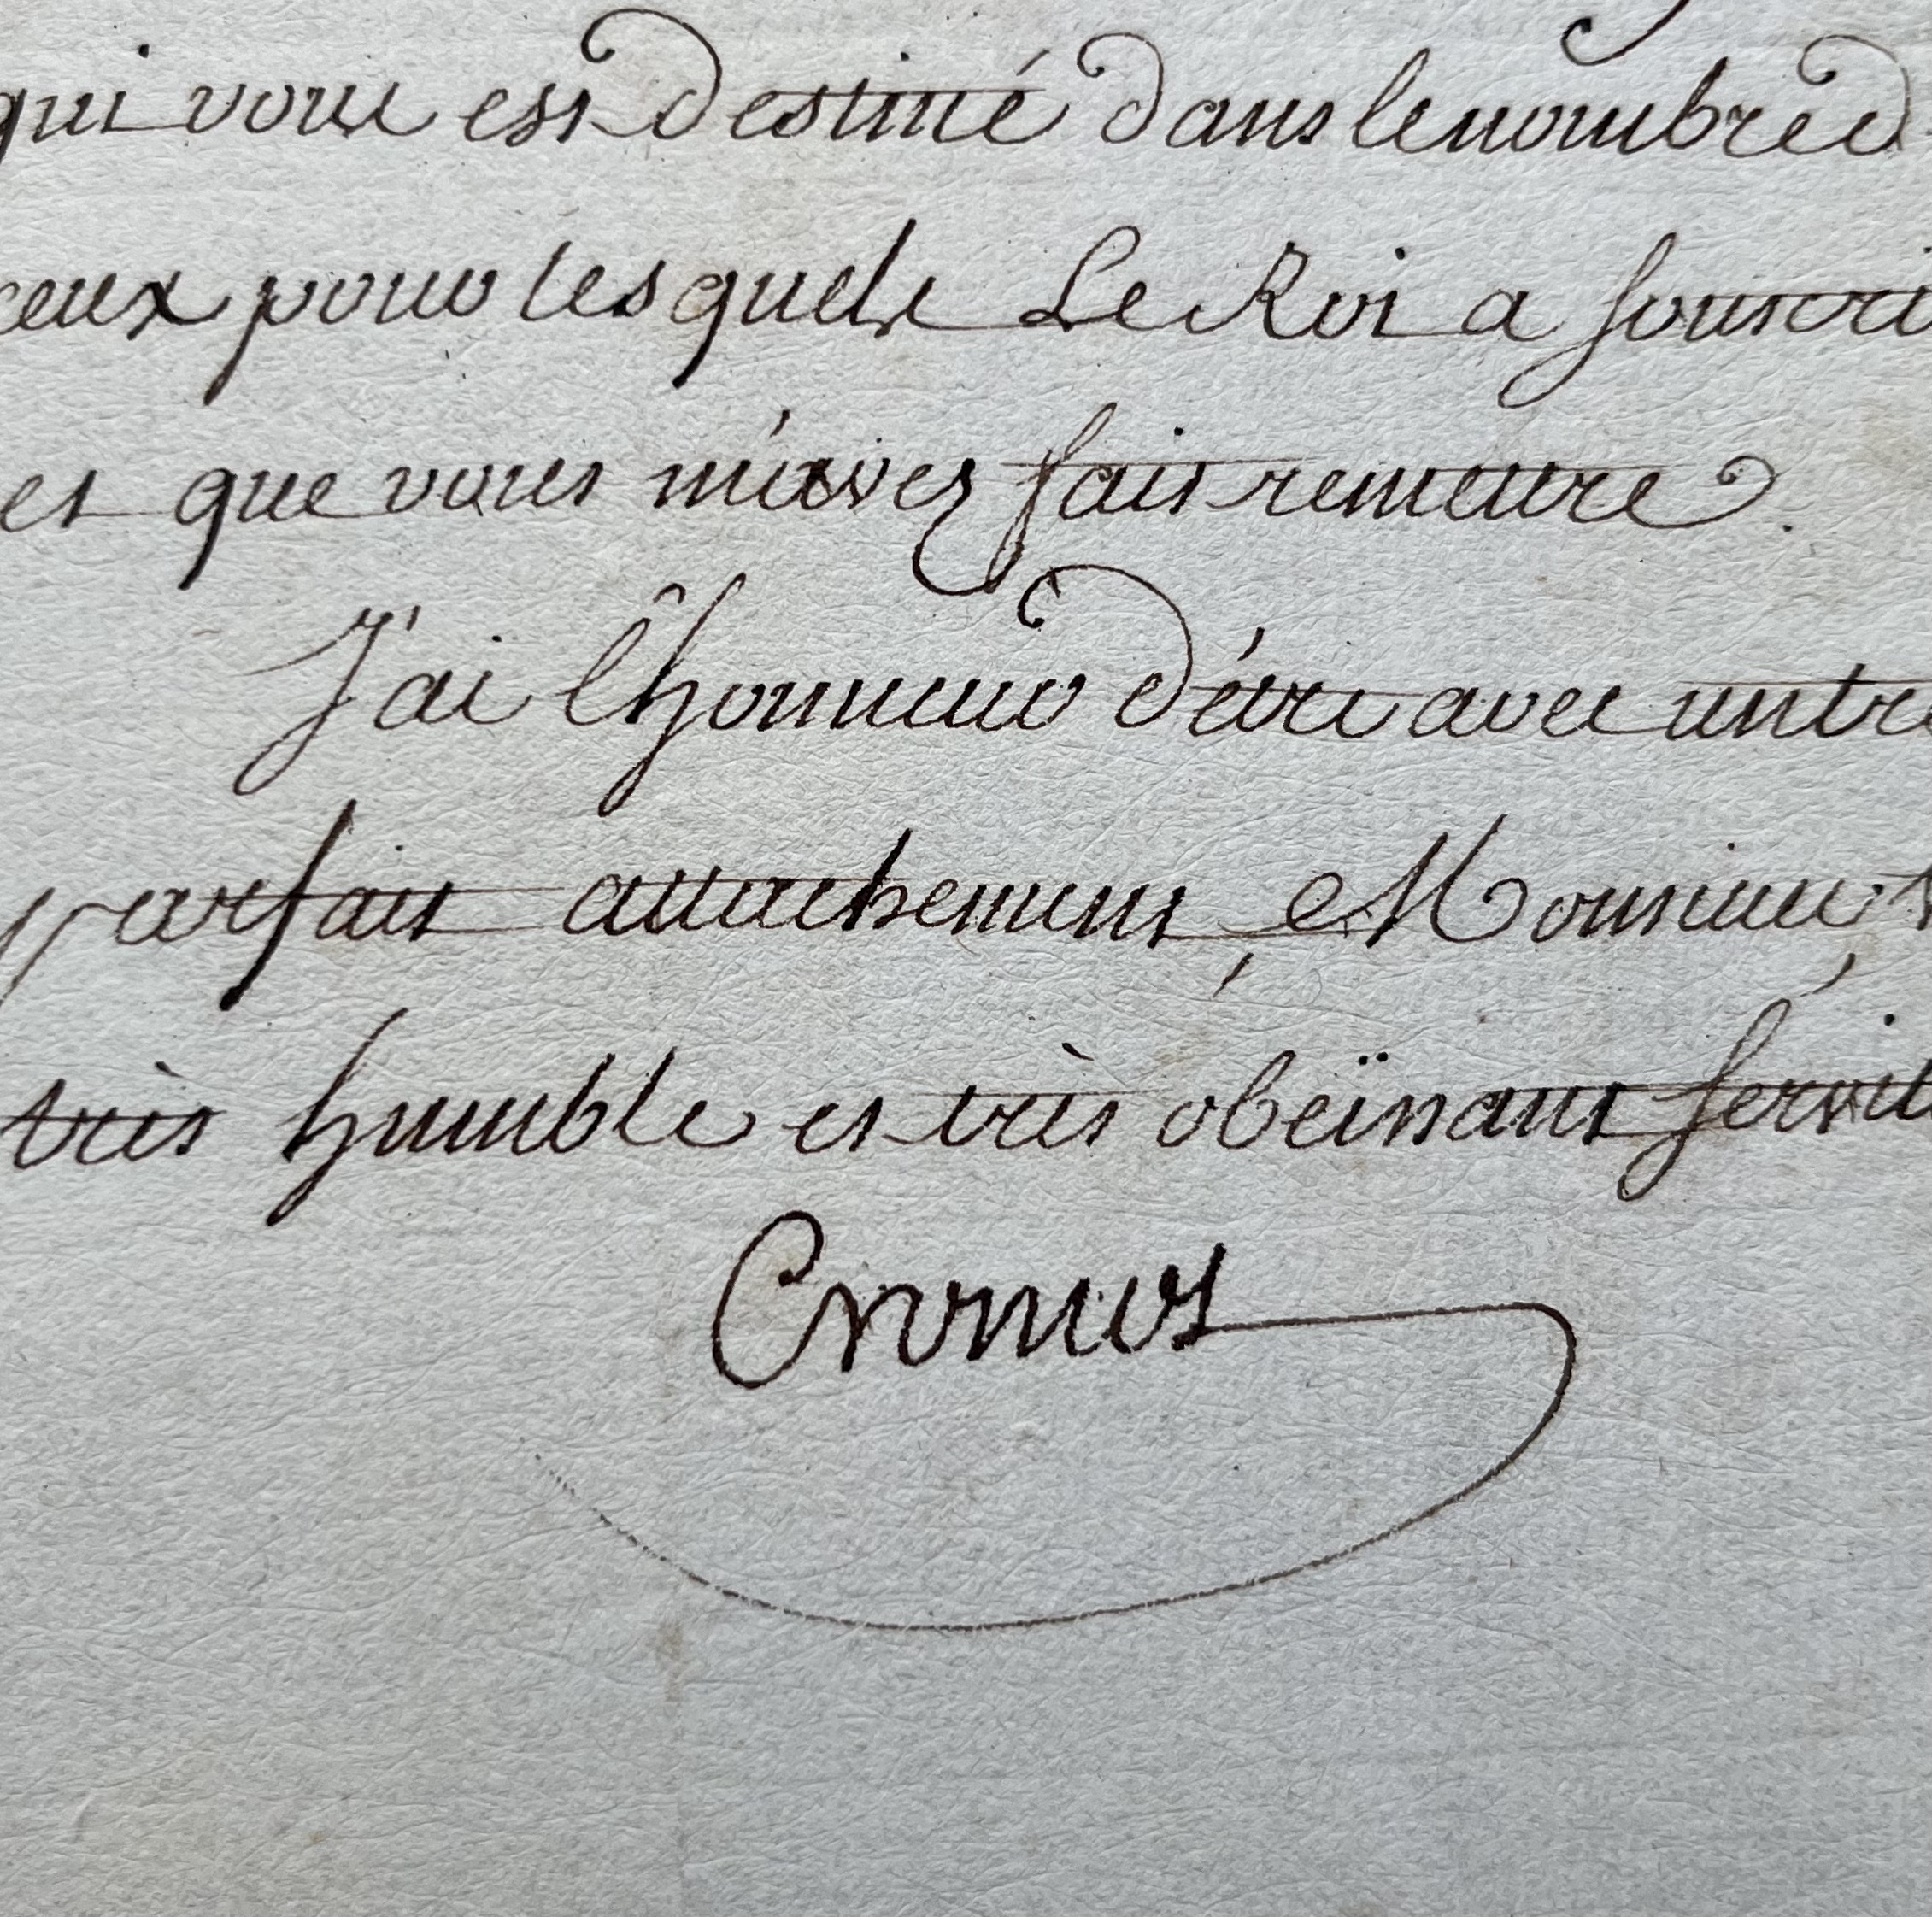 qui vous est destiné dans le nombre d
ceux pour lesquels Le Roi a souscri
et que vous m'avez fait remettre.
J'ai l'honneur d'être avec un tré
parfait attachement, Monsieur, v
très humble et très obeïssant servit